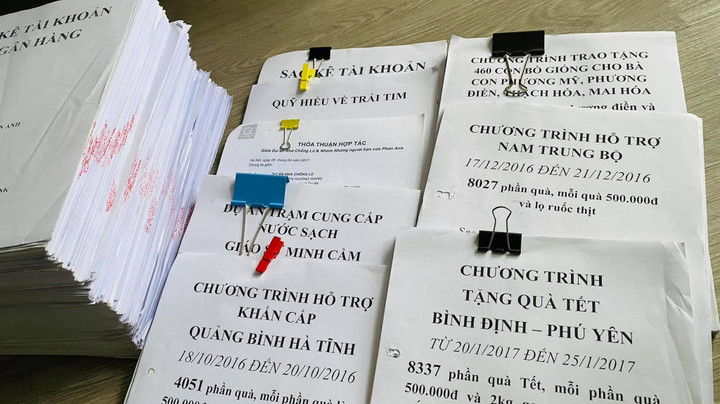 KÊ TÀI KHOẢN
NGÂN HÀNG
ANH
NK
SAO KÊ TÀI KHOẢN
QUỸ HIỂU VỀ TRÁI TIM
THỎA THUẬN HỢP TÁC
Giữa Dự án Nhà Chống Lũ & Nhóm Những người bạn của Phan Anh
DỰ ÁN TRẠM CUNG CẤP
NƯỚC SẠCH
GIÁO SƯ MINH CẦM
CHƯƠNG TRÌNH HỖ TRỢ
KHẨN CẤP
QUẢNG BÌNH HÀ TĨNH
18/10/2016 ĐẾN 20/10/2016
4051 phần quà, mỗi phần quà
500.000đ
CHƯƠNG TRÌNH TRAO TẶNG
460 CON BÒ GIỐNG CHO BÀ
CON PHƯƠNG MỸ, PHƯƠNG
ĐIỀN, THẠCH HÓA, MAI HÓA
điền và
CHƯƠNG TRÌNH HỖ TRỢ
NAM TRUNG BỘ
17/12/2016 ĐẾN 21/12/2016
8027 phần quà, mỗi quà 500.000đ
và lọ ruốc thịt
CHƯƠNG TRÌNH
TẶNG QUÀ TẾT
BÌNH ĐỊNH – PHÚ YÊN
TỪ 20/1/2017 ĐẾN 25/1/2017
8337 phần quà Tết, mỗi phần quà
500.000đ và 2kg